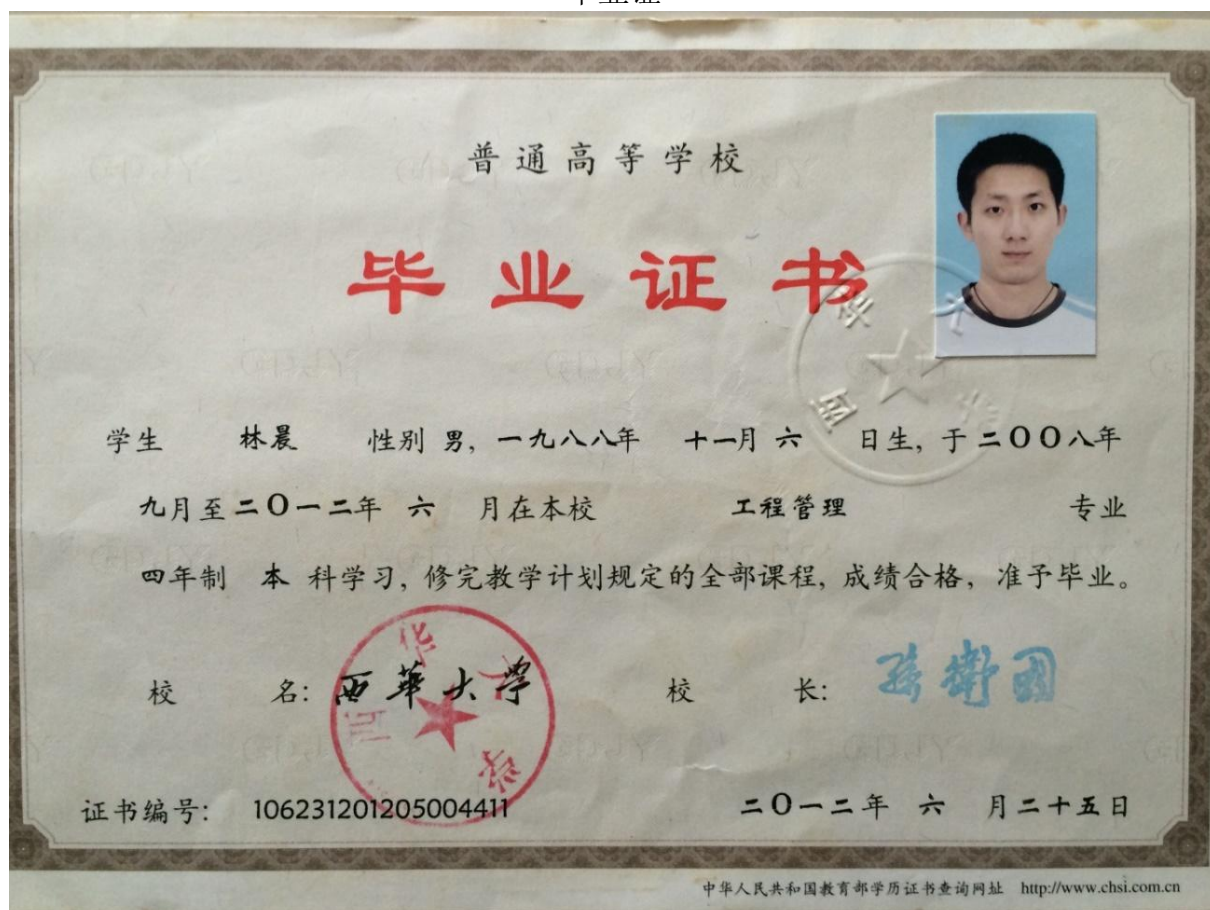 毕业证
普通高等学校
毕业证书
学生 林晨 性别 男, 一九八八年 十一月 六 日生, 于 二〇〇八年
九月至 二〇一二年 六 月在本校 工程管理 专业
四年制 本 科学习, 修完教学计划规定的全部课程, 成绩合格, 准予毕业。
西华大学
校 名: 西華大學 校 长: 孫衛國
西华大学
证书编号: 106231201205004411 二〇一二年 六 月二十五日
中华人民共和国教育部学历证书查询网址 http://www.chsi.com.cn